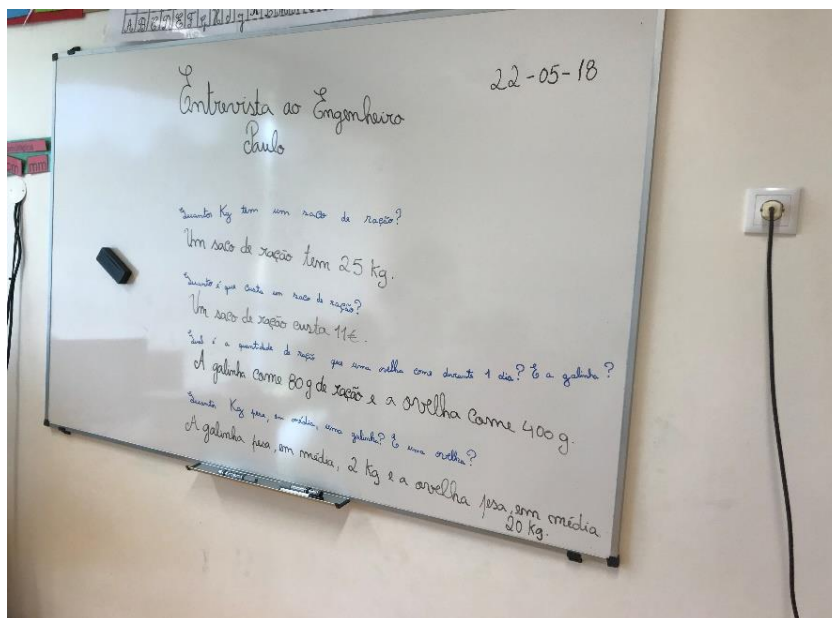 22-05-18
Entrevista ao Engenheiro
Paulo
Quantos Kg tem um saco de ração?
Um saco de ração tem 25 Kg.
Quanto é que custa um saco de ração?
Um saco de ração custa 11€.
Qual é a quantidade de ração que uma ovelha come durante 1 dia? E a galinha?
A galinha come 80 g de ração e a ovelha come 400 g.
Quantos Kg pesa, em média, uma galinha? E uma ovelha?
A galinha pesa, em média, 2 Kg e a ovelha pesa, em média
20 Kg.
mm